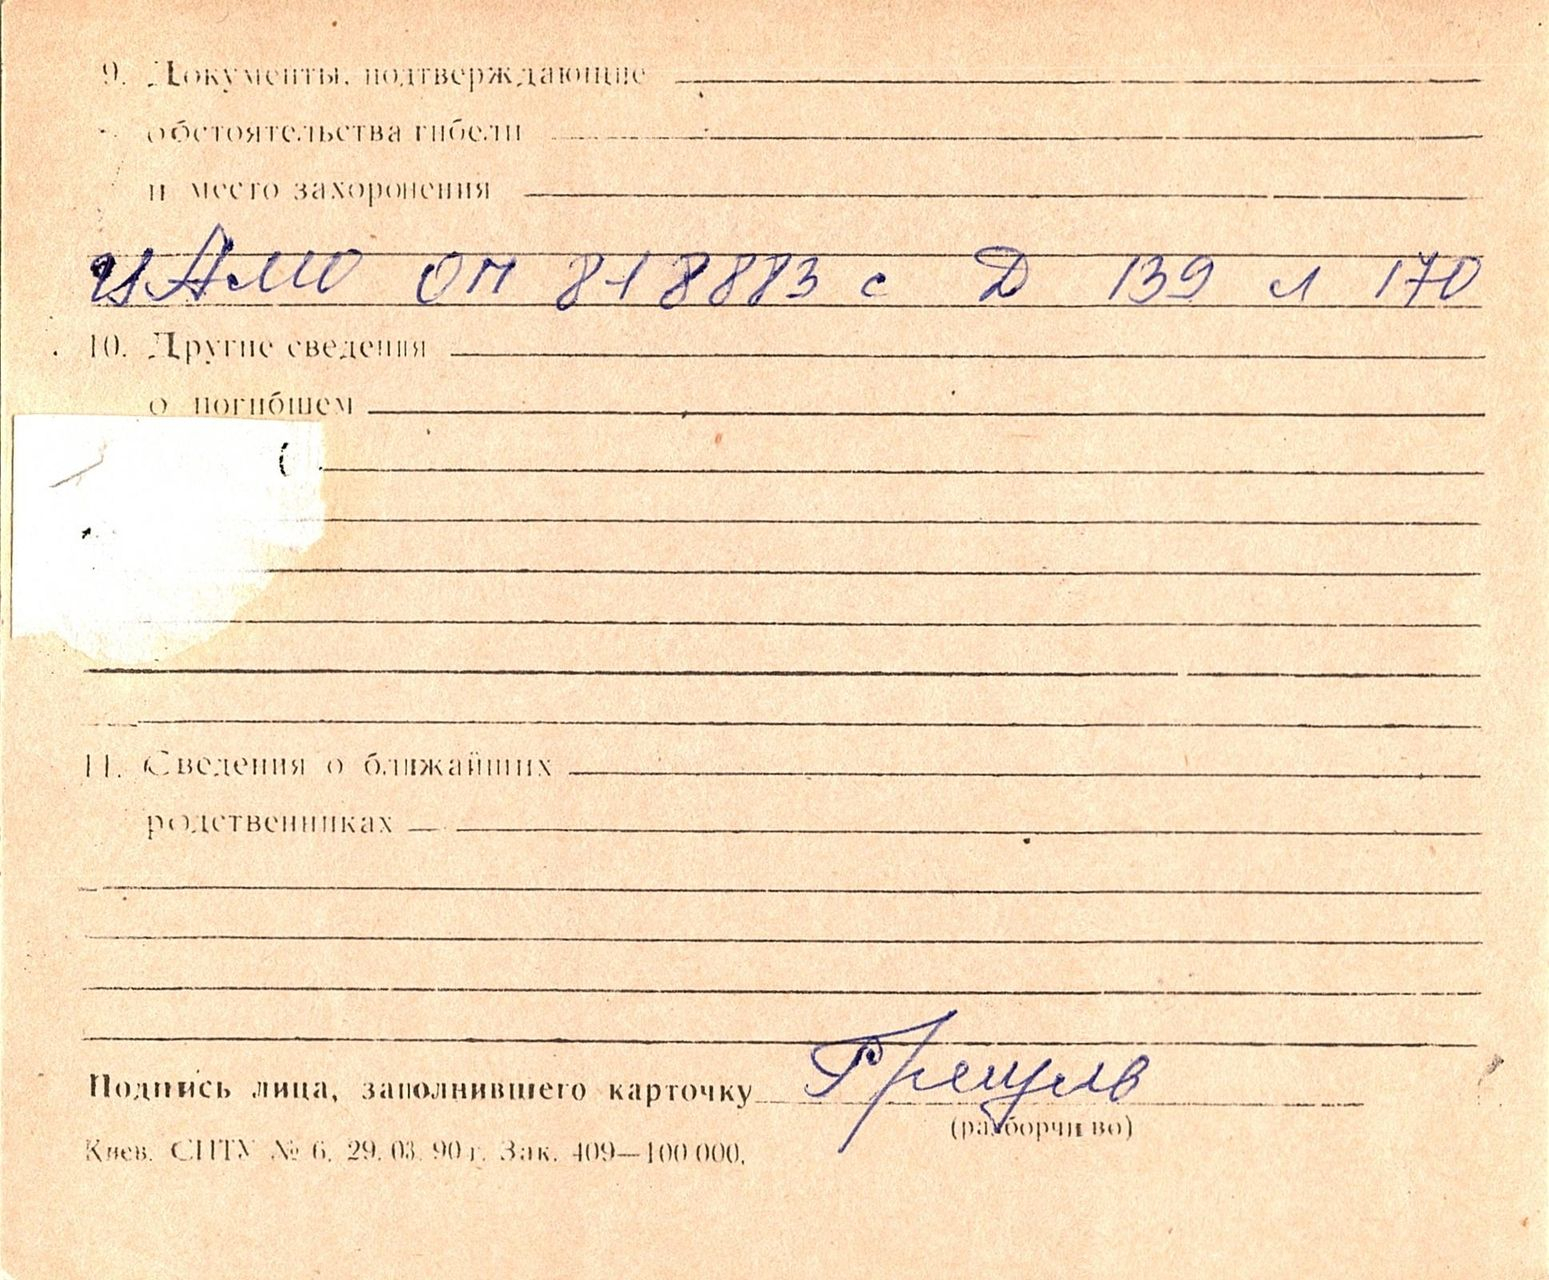 9. Документы, подтверждающие
обстоятельства гибели
и место захоронения
ЦАМО ОП 818883 с Д 139 л 170
10. Другие сведения
о погибшем
11. Сведения о ближайших
родственниках
Подпись лица, заполнившего карточку
(разборчиво)
Киев. СПТУ № 6. 29.03.90 г. Зак. 409—100 000.